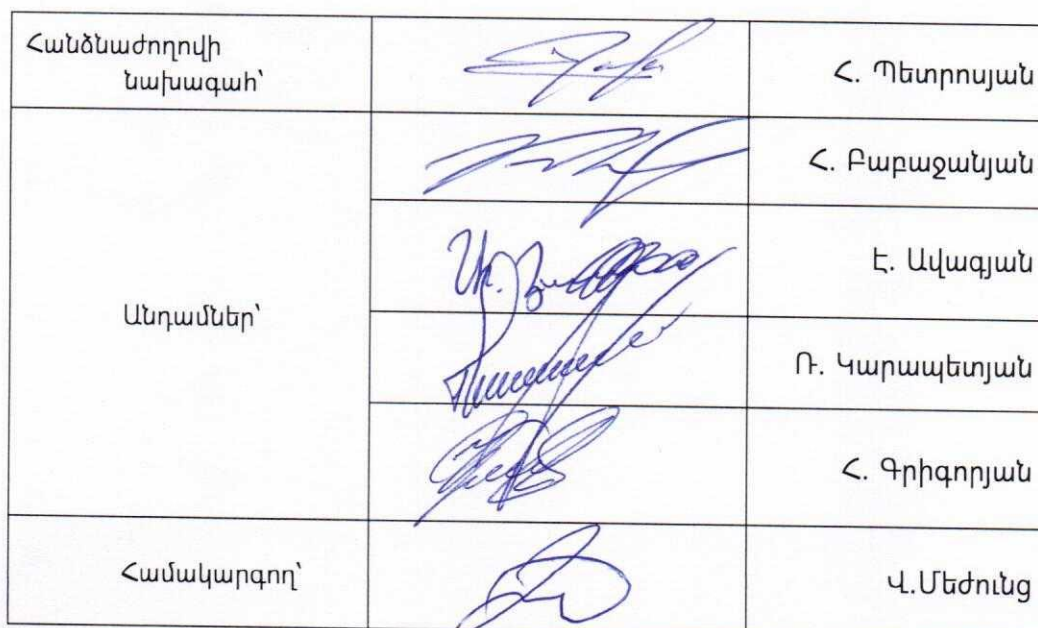 Հանձնաժողովի
նախագահ՝
Հ. Պետրոսյան
Հ. Բաբաջանյան
Է. Ավագյան
Անդամներ՝
Ռ. Կարապետյան
Հ. Գրիգորյան
Համակարգող՝
Վ.Մեժունց